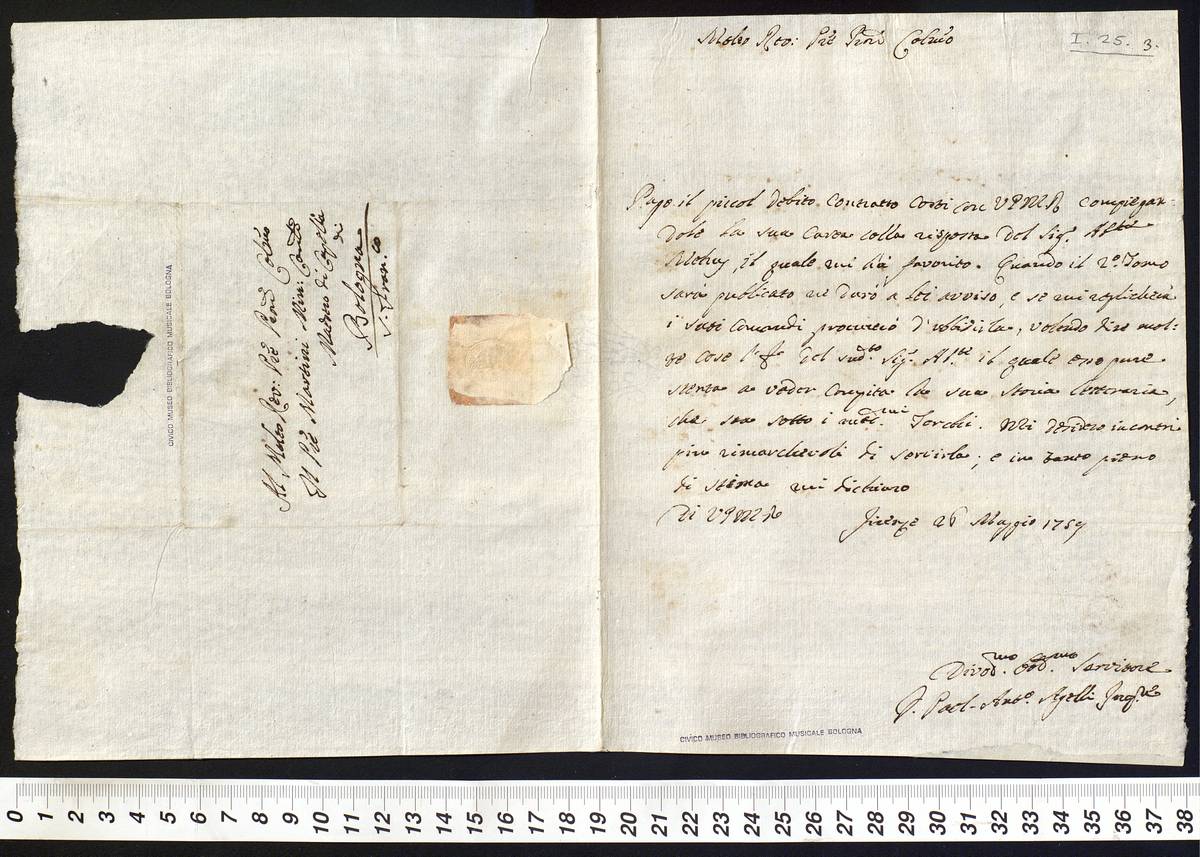 Molto Rev: Pre Pron Colmo
I. 25. 3.
Pago il piccol debito contratto costì con VPMR compiegan-
dole la sua Carta colla risposta del Sig. Abte
Mehus, il quale mi ha favorito. Quando il 2o. Tomo
sarà publicato ne darò a Lei avviso, e se mi
i suoi Comandi procurerò d'ubbidirla, volendo dire mol-
te cose del sudto Sig. Abte il quale
a veder compita la sua storia letteraria,
che sta sotto i mdmi Torchi. Mi desidero incontri
più rimarchevoli di servirla; e in tanto pieno
di stima mi dichiaro
Di VPMR Firenze 26 Maggio 1759
Divotmo Obbmo Servitore
F. Paol-Anto. Agelli Inqre
CIVICO MUSEO BIBLIOGRAFICO MUSICALE BOLOGNA
Al Molto Rev: Pre Pron Colmo
Il Pre Martini Min: Conle
Maestro di Capella
di
Bologna
S. Fran.co
CIVICO MUSEO BIBLIOGRAFICO MUSICALE BOLOGNA
0 1 2 3 4 5 6 7 8 9 10 11 12 13 14 15 16 17 18 19 20 21 22 23 24 25 26 27 28 29 30 31 32 33 34 35 36 37 38